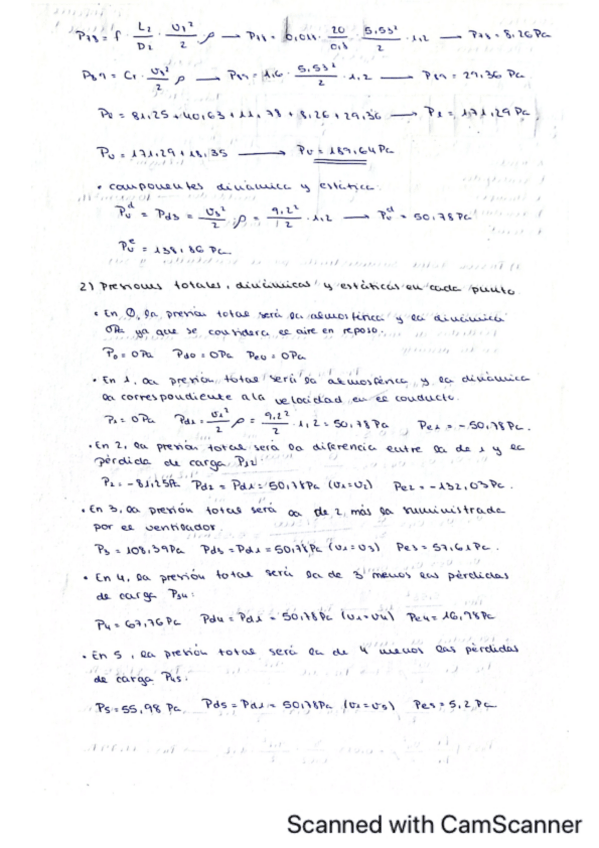 P78 = f · L2/D2 · v1²/2 ρ → P78 = 0,011 · 20/0,8 · 5,53²/2 · 1,2 → P78 = 8,26 Pa
P89 = Cr · v8²/2 ρ → P89 = 1,6 · 5,53²/2 · 1,2 → P89 = 29,36 Pa
Pe = 81,25 + 40,63 + 11,79 + 8,26 + 29,36 → Pe = 171,29 Pa
Pv = 171,29 + 18,35 → Pv = 189,64 Pa
• componentes dinámica y estática.
Pvᵈ = Pd3 = v3²/2 · ρ = 9,2²/2 · 1,2 → Pvᵈ = 50,78 Pa
Pvᵉ = 138,86 Pa.
2) Presiones totales, dinámicas y estáticas en cada punto
• En 0, la presión total será la atmosférica y la dinámica
0Pa ya que se considera el aire en reposo.
P0 = 0Pa Pd0 = 0Pa Pe0 = 0Pa
• En 1, la presión total será la atmosférica y la dinámica
la correspondiente a la velocidad en el conducto.
P1 = 0Pa Pd1 = v1²/2 ρ = 9,2²/2 · 1,2 = 50,78 Pa Pe1 = -50,78 Pa.
• En 2, la presión total será la diferencia entre la de 1 y la
pérdida de carga P12
P2 = -81,25Pa Pd2 = Pd1 = 50,78Pa (v1=v2) Pe2 = -132,03Pa.
• En 3, la presión total será la de 2 más la suministrada
por el ventilador.
P3 = 108,39Pa Pd3 = Pd1 = 50,78Pa (v1=v3) Pe3 = 57,61 Pa.
• En 4, la presión total será la de 3 menos las pérdidas
de carga P34:
P4 = 67,76 Pa Pd4 = Pd1 = 50,78 Pa (v1=v4) Pe4 = 16,98 Pa
• En 5, la presión total será la de 4 menos las pérdidas
de carga P45.
P5 = 55,98 Pa. Pd5 = Pd1 = 50,78Pa (v1=v5) Pe5 = 5,2 Pa
Scanned with CamScanner